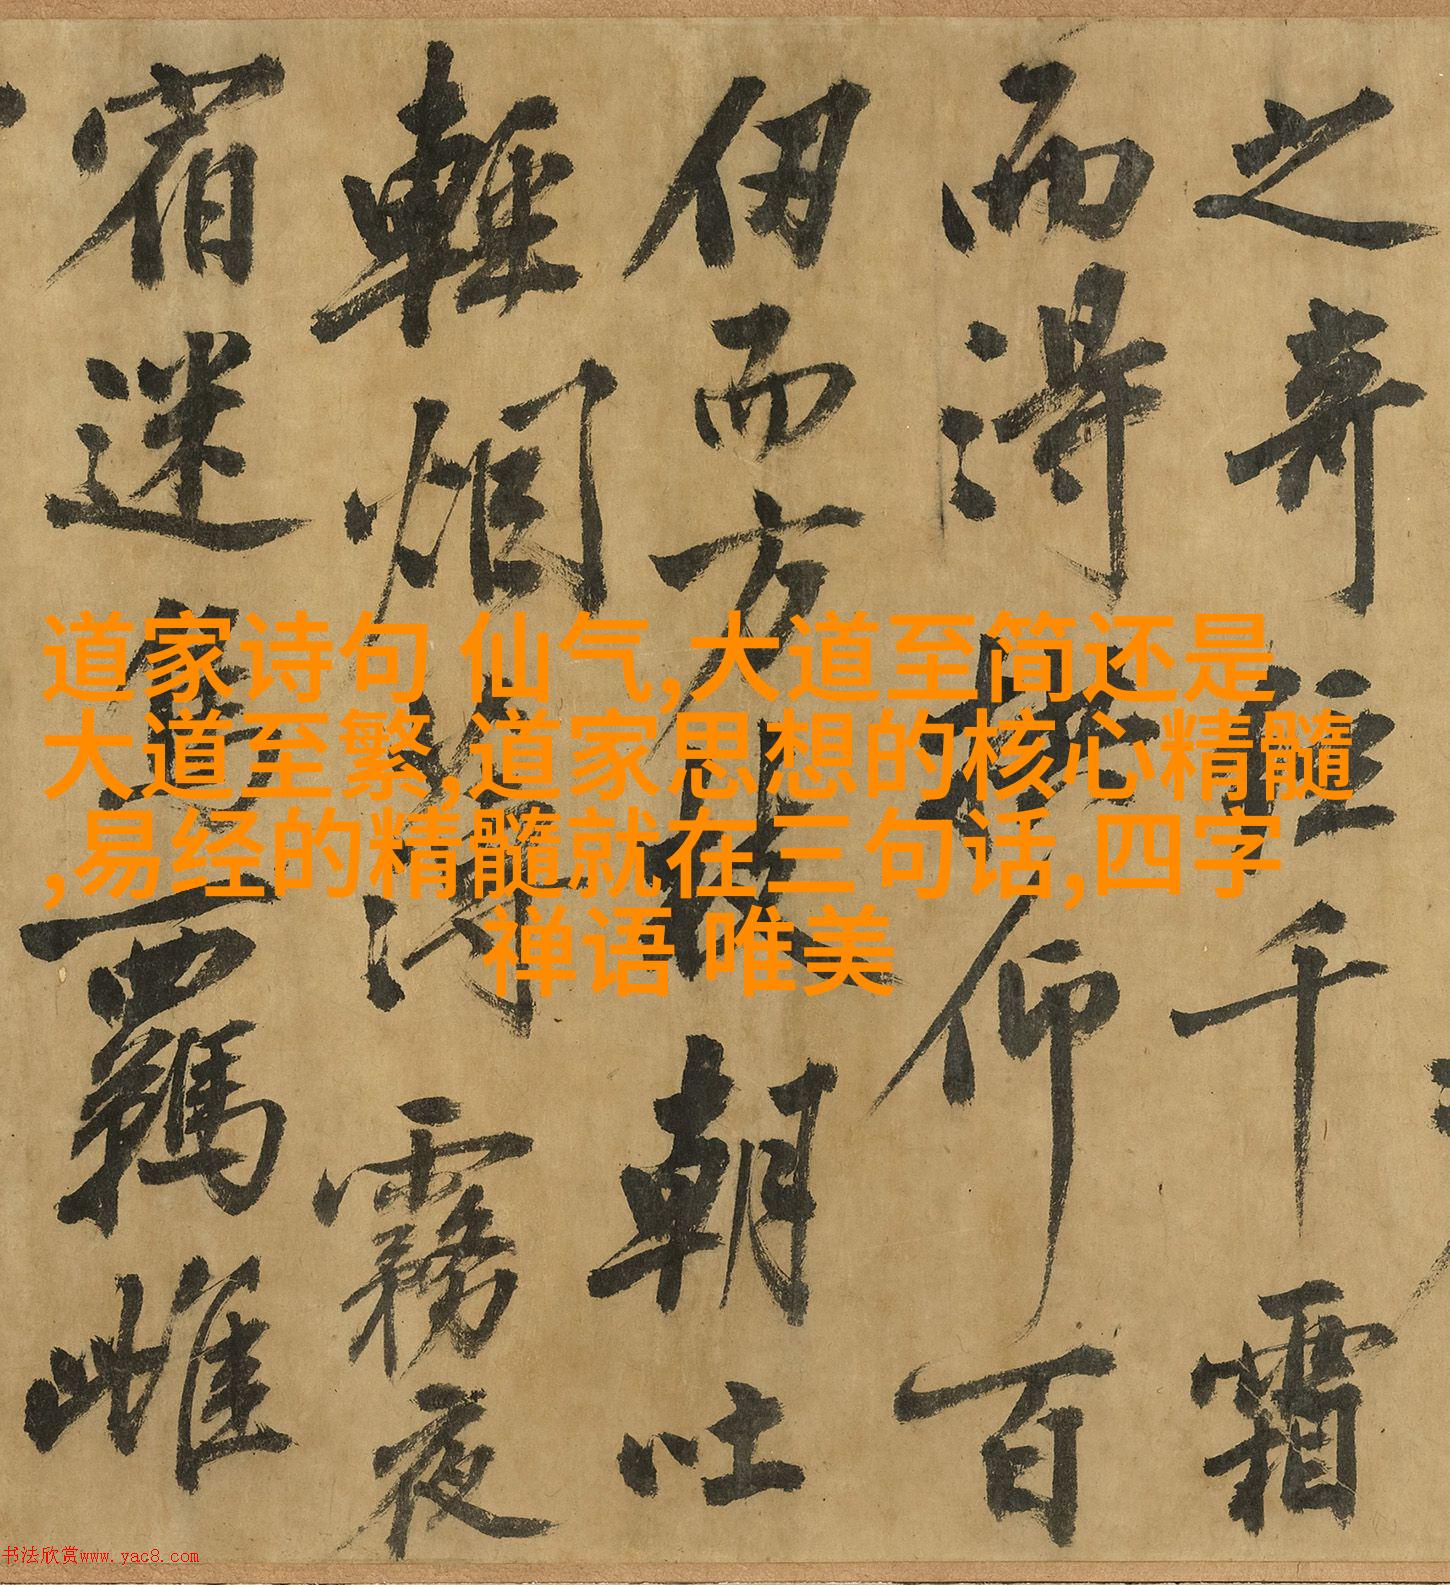 之奇經千霜
而得拱仰百
仞而方枝朝吐
輕烟薄霧夜
宿迷鳥羈雌
道家诗句 仙气,大道至简还是
大道至繁,道家思想的核心精髓
,易经的精髓就在三句话,四字
禅语 唯美
书法欣赏www.yac8.com